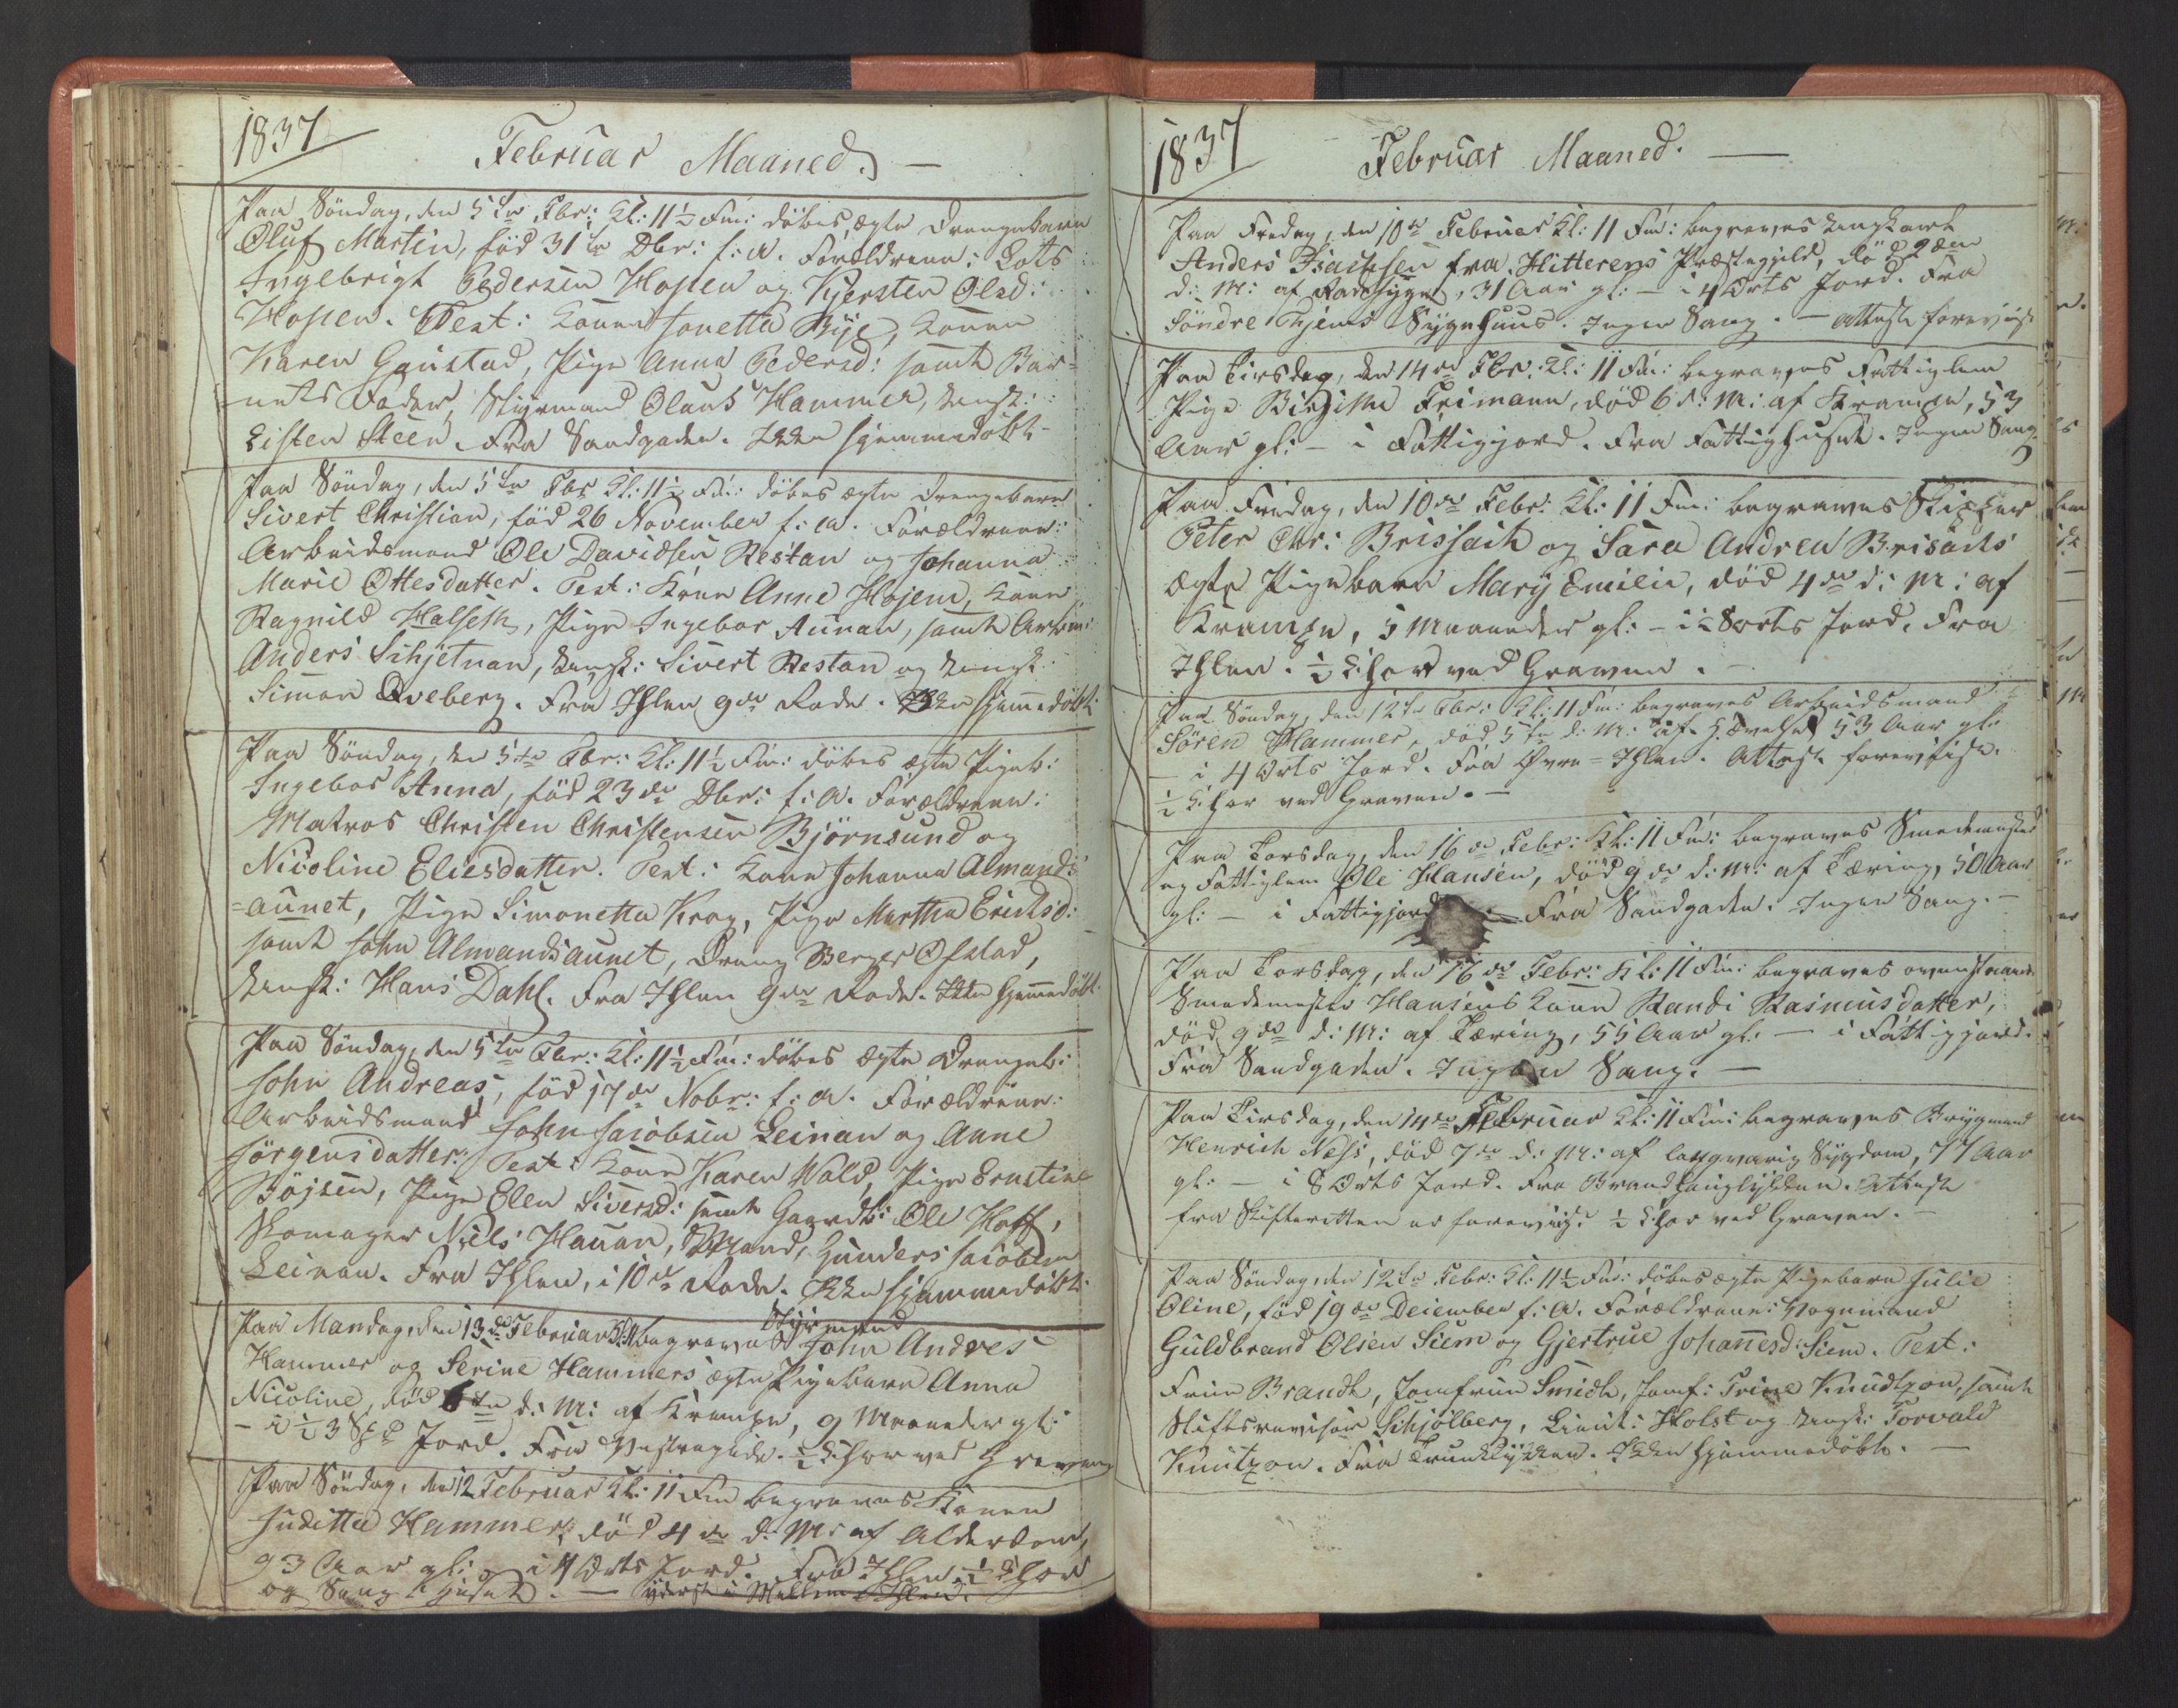 1837
Februar Maaned.
Paa Søndag, den 5te Fbr: Kl: 11½ Fm: døbes ægte Drengebarn
Oluf Martin, fød 31te Dbr: f: A. Forældrene: Lots
Ingebrigt Pedersen Hopen og Kjersten Olsd:
Hopen. Test: Konen Jonetta Bye, Konen
Karen Gaustad, Pige Anna Pedersd: samt Bar-
nets Fader, Styrmand Olaus Hammer, Ungk:
Eisten Steen. Fra Sandgaden. Ikke hjemmedøbt
Paa Søndag, den 5te Fbr Kl: 11½ Fm: døbes ægte Drengebarn
Sivert Christian, fød 26 November f: A. Forældrene:
Arbeidsmand Ole Davidsen Restan og Johanna
Marie Ottesdatter. Test: Kone Anne Højem, Kone
Ragnild Halseth, Pige Ingebor Aunan, samt Arbm:
Anders Schjetnan, Ungk: Sivert Restan og Ungk:
Simon Qveberg. Fra Ihlen 9de Rode. Ikke hjemmedøbt
Paa Søndag, den 5te Fbr: Kl: 11½ Fm: døbes ægte Pigeb:
Ingebor Anna, fød 23de Dbr: f: A. Forældrene:
Matros Christen Christensen Bjørnsund og
Nicoline Eliesdatter. Test: Kone Johanna Almands
=aunet, Pige Simonetta Krog, Pige Martha Erichsd:
samt John Almandsaunet, Dreng Berger Ofstad,
Ungk: Hans Dahl. Fra Ihlen 9de Rode. Ikke hjemmedøbt.
Paa Søndag, den 5te Fbr: Kl: 11½ Fm: døbes ægte Drengeb:
John Andreas, fød 17de Nobr: f: A. Forældrene:
Arbeidsmand John Jacobsen Leinan og Anne
Jørgensdatter. Test: Kone Karen Wold, Pige Ernstine
Bøjsen, Pige Elen Siversd: samt Gaardb: Ole Hoff,
Skomager Niels Hauan, Mand, Gunders Jacobsen
Leinan. Fra Ihlen, i 10de Rode. Ikke hjemmedøbt.
Paa Mandag, den 13de Februar Kl: 11 begraves Styrmand John Andres
Hammer og Serine Hammers ægte Pigebarn Anna
Nicoline, død 6te d: M: af Krampe, 9 Maaneder gl:
- i ½ 3 Spd Jord. Fra Vestregade. ½ Chor ved Graven
Paa Søndag, den 12 Februar Kl: 11 Fm begraves Konen
Juditta Hammer, død 4de d: M: af Alderdom,
93 Aar gl: - i 4 Orts Jord. Fra Ihlen. ½ Chor
og Sang i Huset. - yderst i Mellem Ihlen.
1837
Februar Maaned.
Paa Fredag, den 10de Februar Kl: 11 Fm: begraves Ungkarl
Anders Isachsen fra Hitterens Præstegjeld, død 2den
d: M: af Radesyge, 31 Aar gl: - i 4 Orts Jord. Fra
Søndre Thjems Sygehuus. Ingen Sang. - Attest foreviist
Paa Tirsdag, den 14de Fbr: Kl: 11 Fm: begraves Fattiglem
Pige Birgithe Friemann, død 6 d: M: af Krampe, 53
Aar gl: - i Fattigjord. Fra Fattighuset. Ingen Sang.
Paa Fredag, den 10de Febr: Kl: 11 Fm: begraves Skipper
Peter Chr: Brissach og Sara Andrea Brisachs
ægte Pigebarn Mary Emilie, død 4de d: M: af
Krampe, 5 Maaneder gl: - i 2 Orts Jord. Fra
Ihlen. ½ Chor ved Graven. -
Paa Søndag, den 12te Fbr: Kl: 11 Fm: begraves Arbeidsmand
Søren Hammer, død 5te d: M: af Hævelse, 53 Aar gl:
- i 4 Orts Jord. Fra Øvre=Ihlen. Attest foreviist.
½ Chor ved Graven. -
Paa Torsdag, den 16de Febr: Kl: 11 Fm: begraves Smedemester
og Fattiglem Ole Hansen, død 9de d: M: af Tæring, 50 Aar
gl: - i Fattigjord. Fra Sandgaden. Ingen Sang. -
Paa Torsdag, den 16de Febr: Kl: 11 Fm: begraves ovenstaaende
Smedemester Hansens Kone Randi Rasmusdatter,
død 9de d: M: af Tæring, 55 Aar gl: - i Fattigjord.
Fra Sandgaden. Ingen Sang. -
Paa Tirsdag, den 14de Februar Kl: 11 Fm: begraves Brygmand
Henrich Ness, død 7de d: M: af langvarig Sygdom, 77 Aar
gl: - i 8 Orts Jord. Fra Brandhauglykken. Attest
fra Skifteretten er foreviist. ½ Chor ved Graven. -
Paa Søndag, den 12te Febr: Kl: 11½ Fm: døbes ægte Pigebarn Julie
Oline, fød 19de December f: A. Forældrene: Vognmand
Guldbrand Olsen Siem og Gjertrue Johannesd: Siem. Test:
Frue Brandt, Jomfrue Smidt, Jomf: Trine Knudtzon, samt
Stiftsrevisor Schjølberg, Lieut: Holst og Ungk: Torvald
Knutzon. Fra Trunklykken. Ikke hjemmedøbt. -